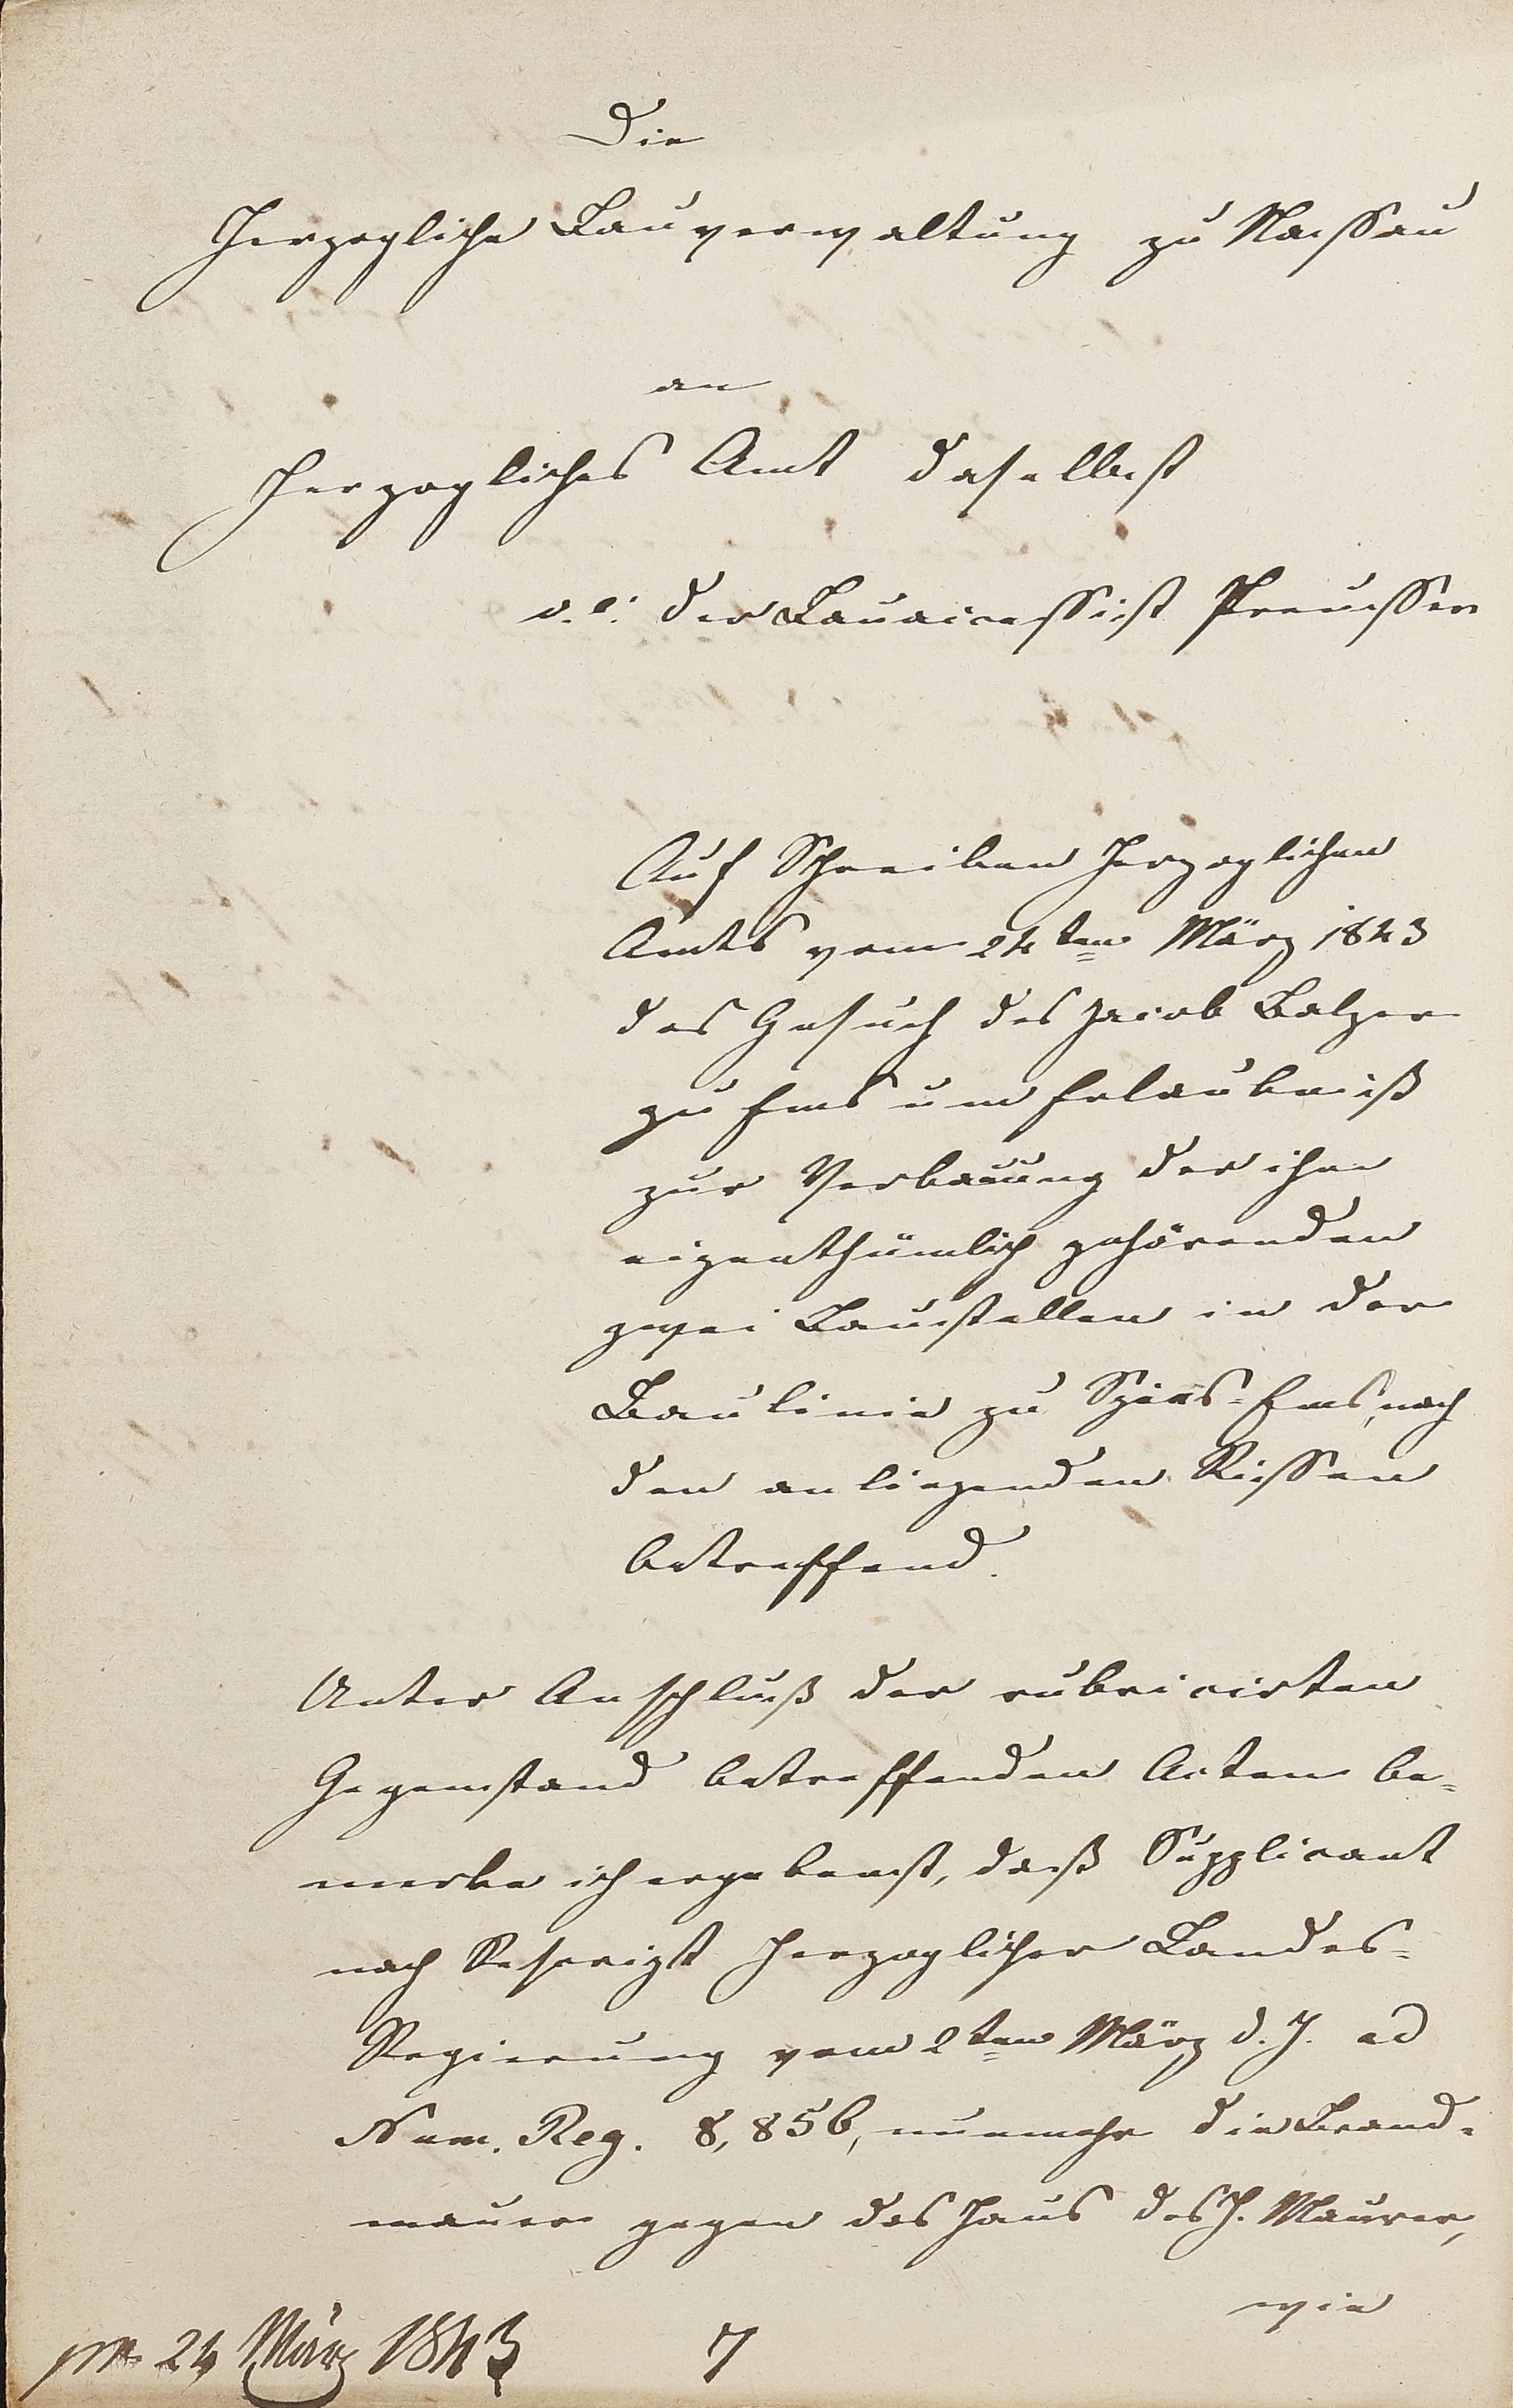 Die
Herzogliche Bauverwaltung zu Nassau
an
Herzogliches Amt daselbst
v. c. der Bauaccessist Preusser
Auf Schreiben Herzoglichen
Amts vom 24ten März 1843
das Gesuch des Jacob Balzer
zu Ems um Erlaubniß
zur Verbauung der ihm
eigenthümlich gehörenden
zwei Baustellen in der
Baulinie zu Spies-Ems, nach
den anliegenden Rissen
betreffend.
Unter Anschluß der rubricirten
Gegenstand betreffenden Acten be-
merke ich ergebenst, daß Supplicant
nach Rescript Herzoglicher Landes-
Regierung vom 2ten März d. J. ad
Num. Reg. 8,856, nunmehr die Brand-
mauer gegen das Haus des H. Maurer,
wie
pr. 24 März 1843 7